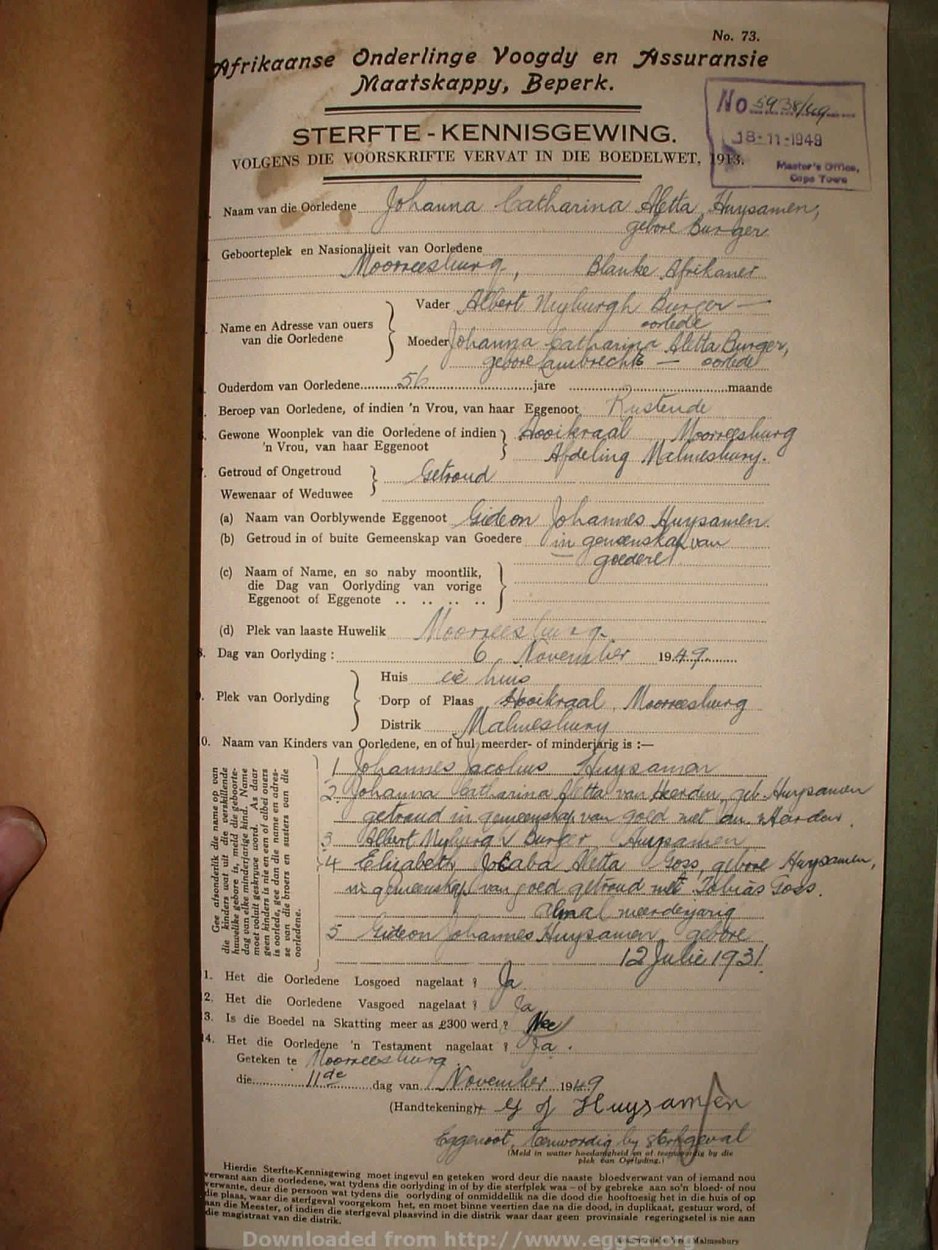 No. 73.
Afrikaanse Onderlinge Voogdy en Assuransie
Maatskappy, Beperk.
No 5938/49
18-11-1949
Master's Office,
Cape Town
STERFTE-KENNISGEWING.
VOLGENS DIE VOORSKRIFTE VERVAT IN DIE BOEDELWET, 1913.
Naam van die Oorledene Johanna Catharina Aletta Huysamen,
gebore Burger
Geboorteplek en Nasionaliteit van Oorledene
Moorreesburg, Blanke Afrikaner
Name en Adresse van ouers van die Oorledene
Vader Albert Myburgh Burger —
oorlede
Moeder Johanna Catharina Aletta Burger,
gebore Lambrechts — oorlede
Ouderdom van Oorledene 56 jare maande
Beroep van Oorledene, of indien 'n Vrou, van haar Eggenoot Rustende
Gewone Woonplek van die Oorledene of indien 'n Vrou, van haar Eggenoot
Hooikraal Moorreesburg
Afdeling Malmesbury.
7. Getroud of Ongetroud
Wewenaar of Weduwee
Getroud
(a) Naam van Oorblywende Eggenoot Gideon Johannes Huysamen
(b) Getroud in of buite Gemeenskap van Goedere in gemeenskap van
goedere
(c) Naam of Name, en so naby moontlik,
die Dag van Oorlyding van vorige
Eggenoot of Eggenote .. .. .. ..
(d) Plek van laaste Huwelik Moorreesburg.
8. Dag van Oorlyding : 6 November 1949
9. Plek van Oorlyding
Huis eie huis
Dorp of Plaas Hooikraal, Moorreesburg
Distrik Malmesbury
0. Naam van Kinders van Oorledene, en of hul meerder- of minderjarig is :—
Gee afsonderlik die name op van
die kinders wat uit die verskillende
huwelike gebore is, meld die geboorte-
dag van elke minderjarige kind. Name
moet voluit geskrywe word. As daar
geen kinders is nie en een of albei ouers
is oorlede, gee dan die name en adres-
se van die broers en susters van die
oorledene.
1 Johannes Jacobus Huysamen
2. Johanna Catharina Aletta van Heerden, geb. Huysamen
getroud in gemeenskap van goed met
3 Albert Myburgh Burger Huysamen
4 Elizabeth Jacaba Aletta Goss, gebore Huysamen,
in gemeenskap van goed getroud met Tobias Goss.
Almal meerderjarig
5 Gideon Johannes Huysamen, gebore
12 Julie 1931.
1. Het die Oorledene Losgoed nagelaat ? Ja
12. Het die Oorledene Vasgoed nagelaat ? Ja
3. Is die Boedel na Skatting meer as £300 werd ? Nee
14. Het die Oorledene 'n Testament nagelaat ? Ja.
Geteken te Moorreesburg
die 11de dag van November 1949
(Handtekening) G J Huysamen
Eggenoot, teenwoordig by sterfgeval
(Meld in watter hoedanigheid en of teenwoordig by die
plek van Oorlyding.)
Hierdie Sterfte-Kennisgewing moet ingevul en geteken word deur die naaste bloedverwant van of iemand nou
verwant aan die oorledene, wat tydens die oorlyding in of by die sterfplek was—of by gebreke aan so'n bloed- of nou
verwante, deur die persoon wat tydens die oorlyding of onmiddellik na die dood die hooftoesig het in die huis of op
die plaas, waar die sterfgeval voorgekom het, en moet binne veertien dae na die dood, in duplikaat, gestuur word, of
aan die Meester, of indien die sterfgeval plaasvind in die distrik waar daar geen provinsiale regeringsetel is nie aan
die magistraat van die distrik.
Malmesbury
Downloaded from http://www.eggsa.org